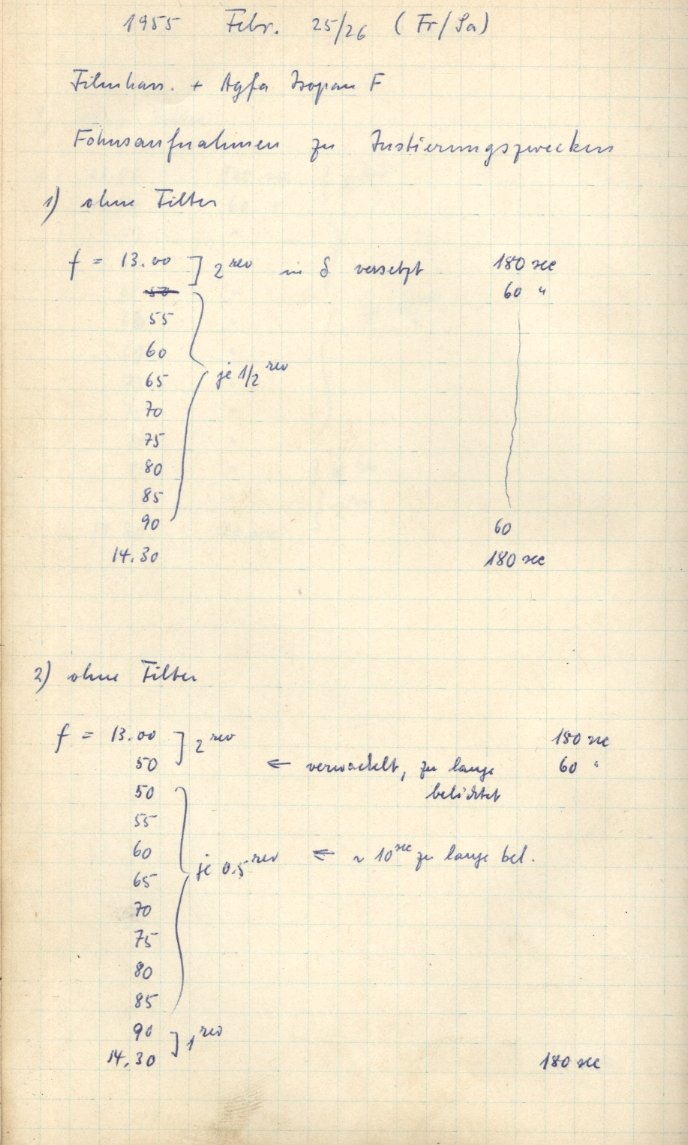 1955 Febr. 25/26 (Fr/Sa)
+ Agfa Isopan F
Fokusaufnahmen zu Justierungszwecken
1) ohne Filter
f = 13.00 ] 2 rev in δ versetzt 180 sec
50 60 "
55
60
65 je 1/2 rev
70
75
80
85
90 60
14.30 180 sec
2) ohne Filter
f = 13.00 ] 2 rev 180 sec
50 ← verwackelt, zu lange 60 "
50 belichtet
55
60 je 0.5 rev ← ~ 10 sec zu lange bel.
65
70
75
80
85
90 ] 1 rev
14.30 180 sec